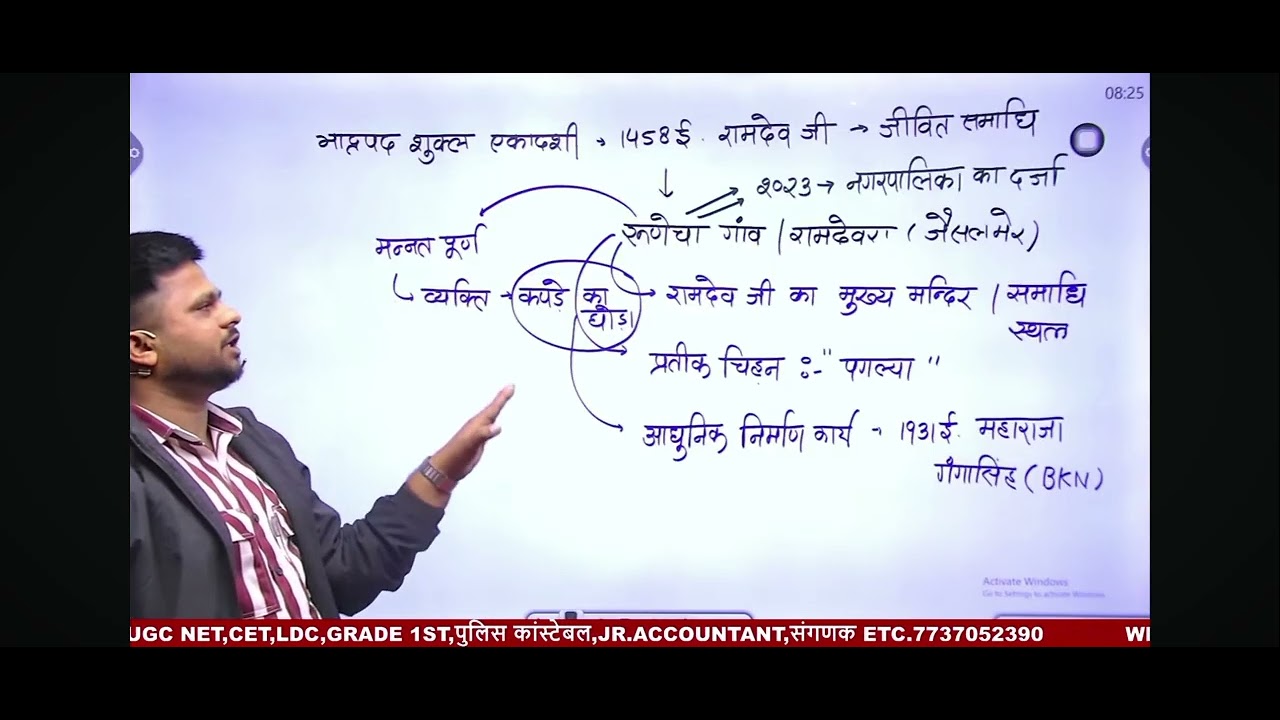 08:25
भाद्रपद शुक्ल एकादशी → 1458ई. रामदेव जी → जीवित समाधि
2023 → नगरपालिका का दर्जा
रूणेचा गांव / रामदेवरा (जैसलमेर)
मन्नत पूर्ण
व्यक्ति → कपड़े का घोड़ा
रामदेव जी का मुख्य मन्दिर / समाधि
स्थल
प्रतीक चिह्न :- "पगल्या"
आधुनिक निर्माण कार्य - 1931ई. महाराजा
गंगासिंह (BKN)
Activate Windows
Go to Settings to activate Windows.
UGC NET,CET,LDC,GRADE 1ST,पुलिस कांस्टेबल,JR.ACCOUNTANT,संगणक ETC.7737052390